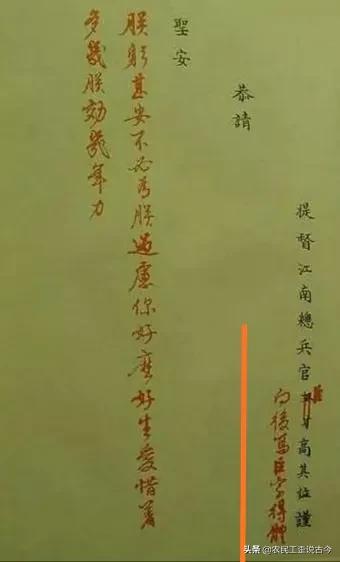 提督江南總兵官奴才高其位謹
臣
向後寫臣字得體
恭請
聖安
朕躬甚安不必為朕過慮你好麽好生愛惜著
多與朕効幾年力
头条 @农民工歪说古今